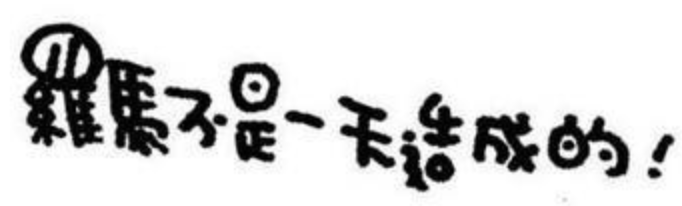 羅馬不是一天造成的!